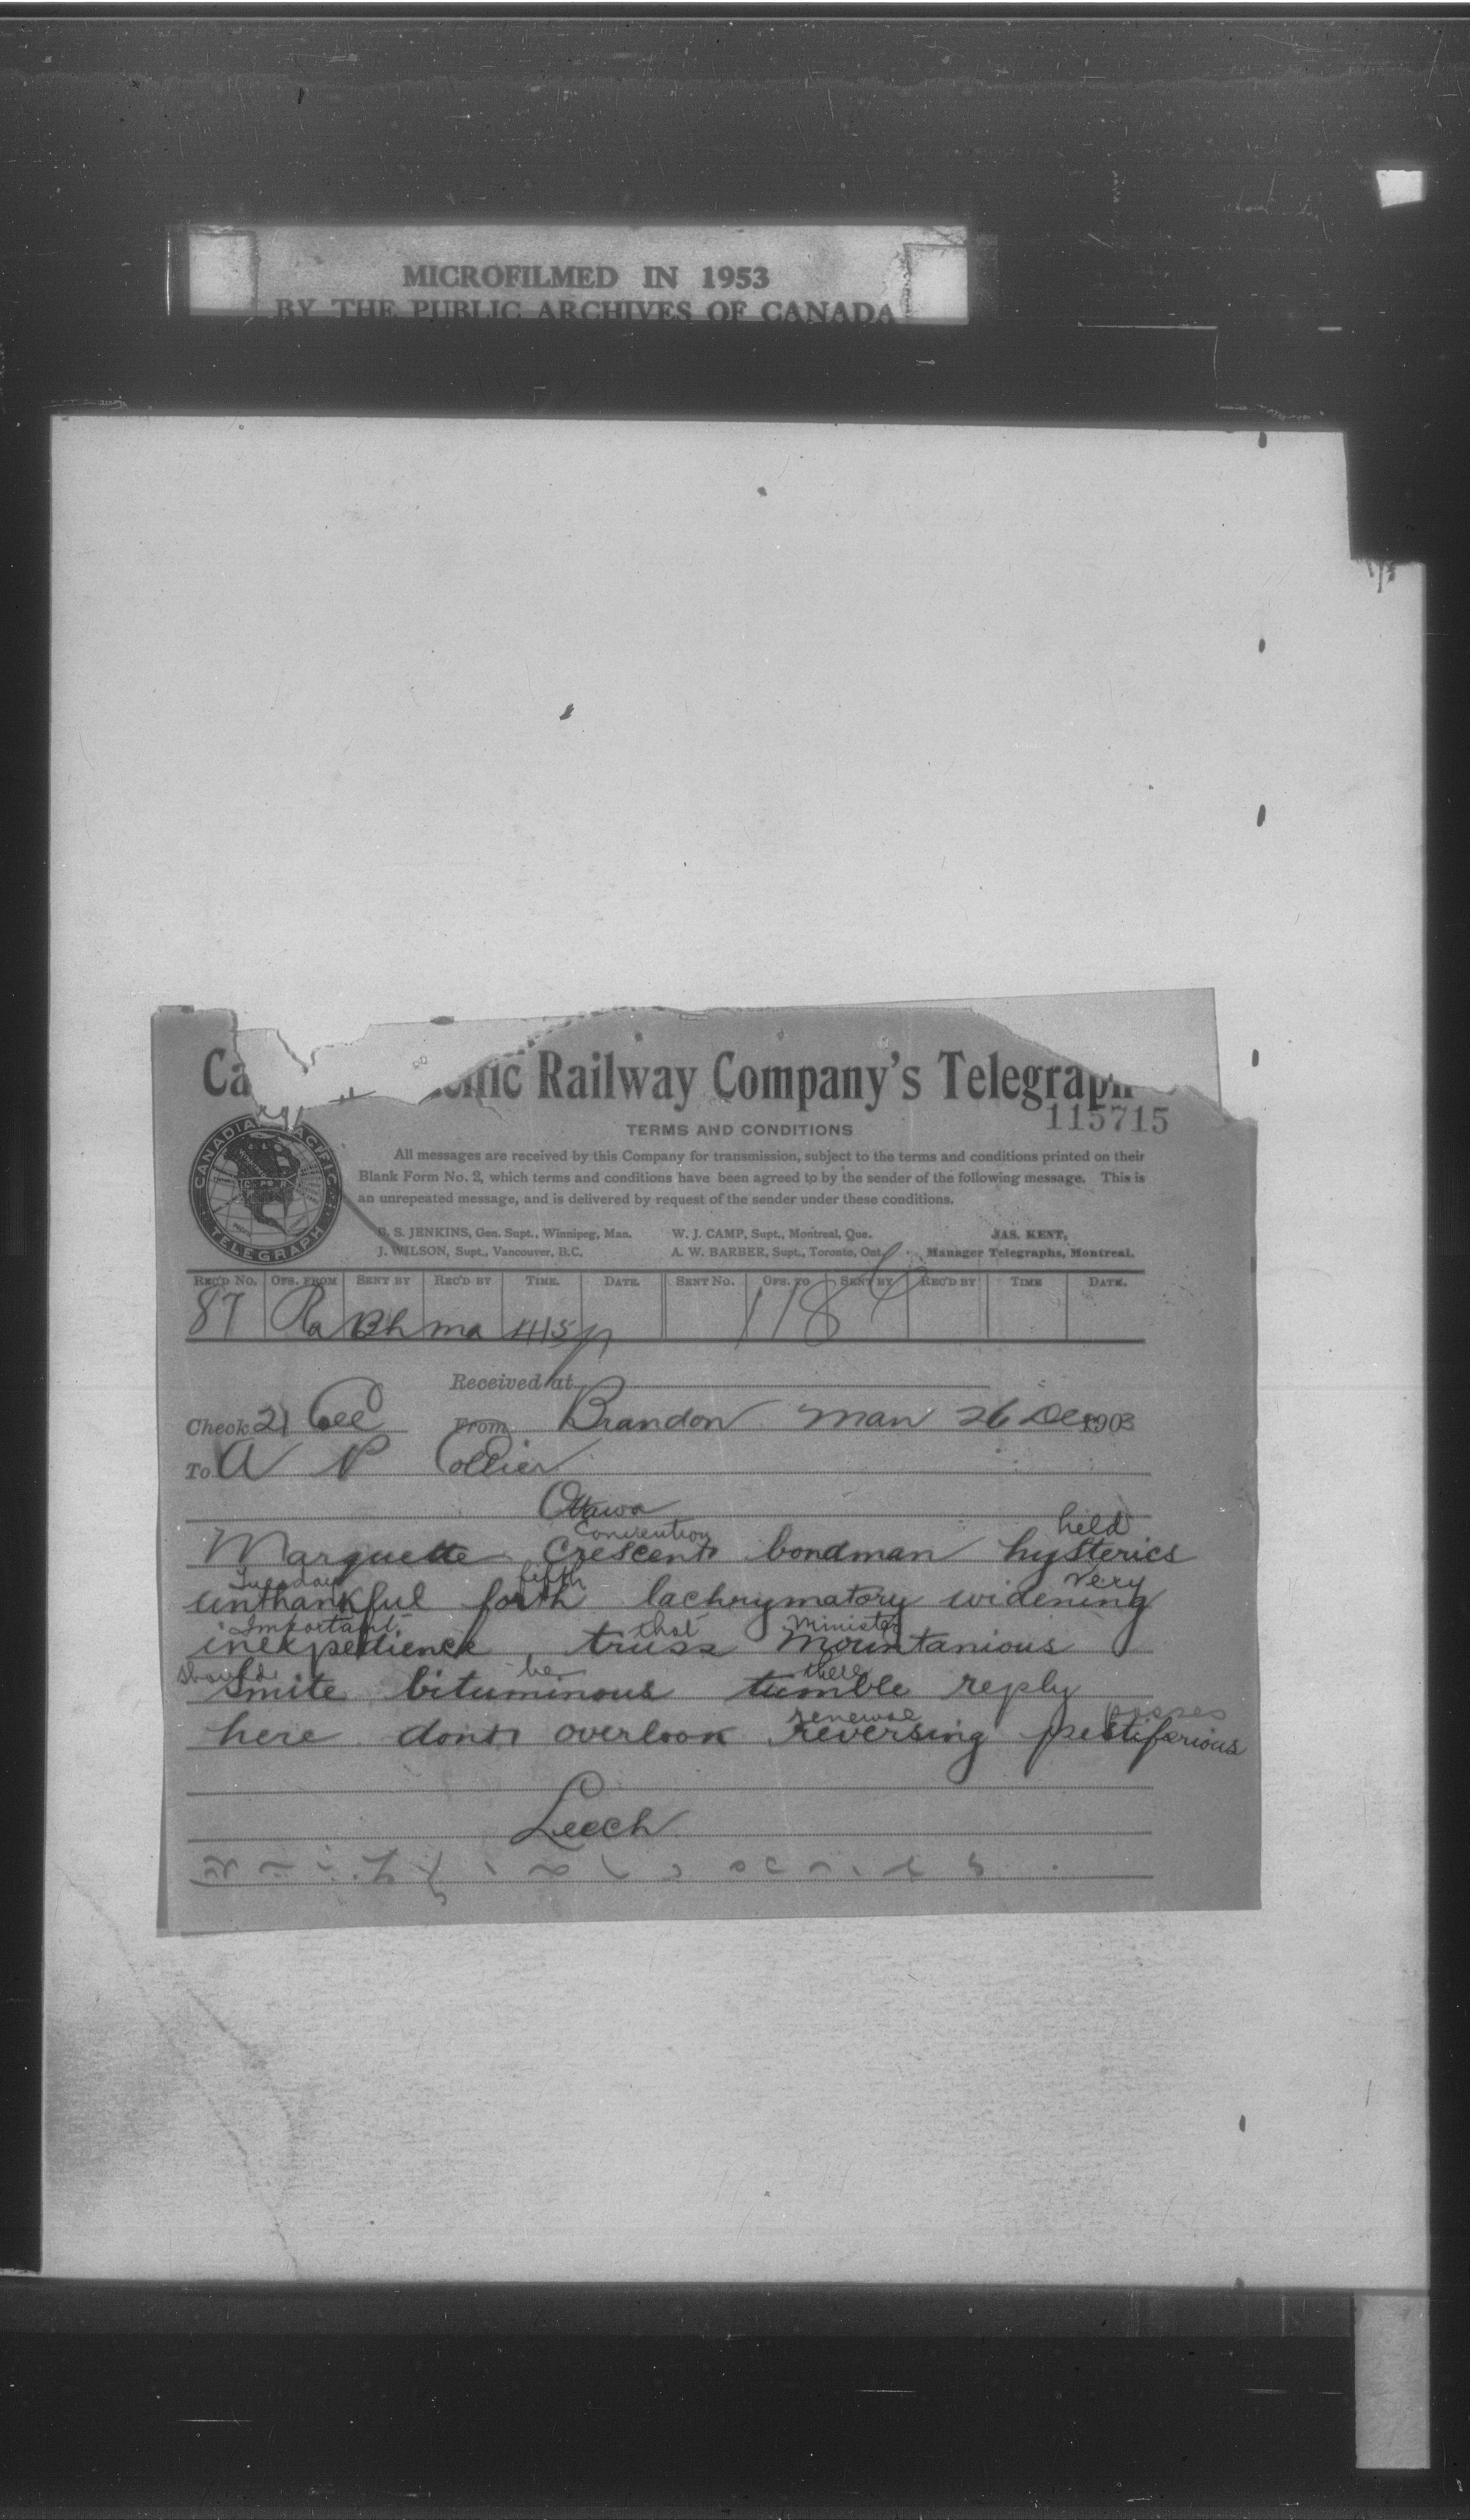 MICROFILMED IN 1953
BY THE PUBLIC ARCHIVES OF CANADA
Railway Company's Telegraph
115715
TERMS AND CONDITIONS
All messages are received by this Company for transmission, subject to the terms and conditions printed on their
Blank Form No. 2, which terms and conditions have been agreed to by the sender of the following message. This is
an unrepeated message, and is delivered by request of the sender under these conditions.
CANADIAN PACIFIC TELEGRAPH
S. JENKINS, Gen. Supt., Winnipeg, Man. W. J. CAMP, Supt., Montreal, Que. JAS. KENT,
J. WILSON, Supt., Vancouver, B.C. A. W. BARBER, Supt., Toronto, Ont. Manager Telegraphs, Montreal.
REC'D No. OFS. FROM SENT BY REC'D BY TIME. DATE. SENT No. OFS. TO SENT BY REC'D BY TIME DATE.
87 Ra Bh ma 118
Received at
Check 21 From Brandon Man 26 Dec 1903
To A P Collier
Ottawa
Convention held
Marquette Crescent bondman hysterics
Tuesday fifth very
unthankful forth lachrymatory widening
Important that Minister
inexpedience truss mountanious
should be there
Smite bituminous tumble reply
renewal passes
here dont overlook reversing pestiferious
Leech